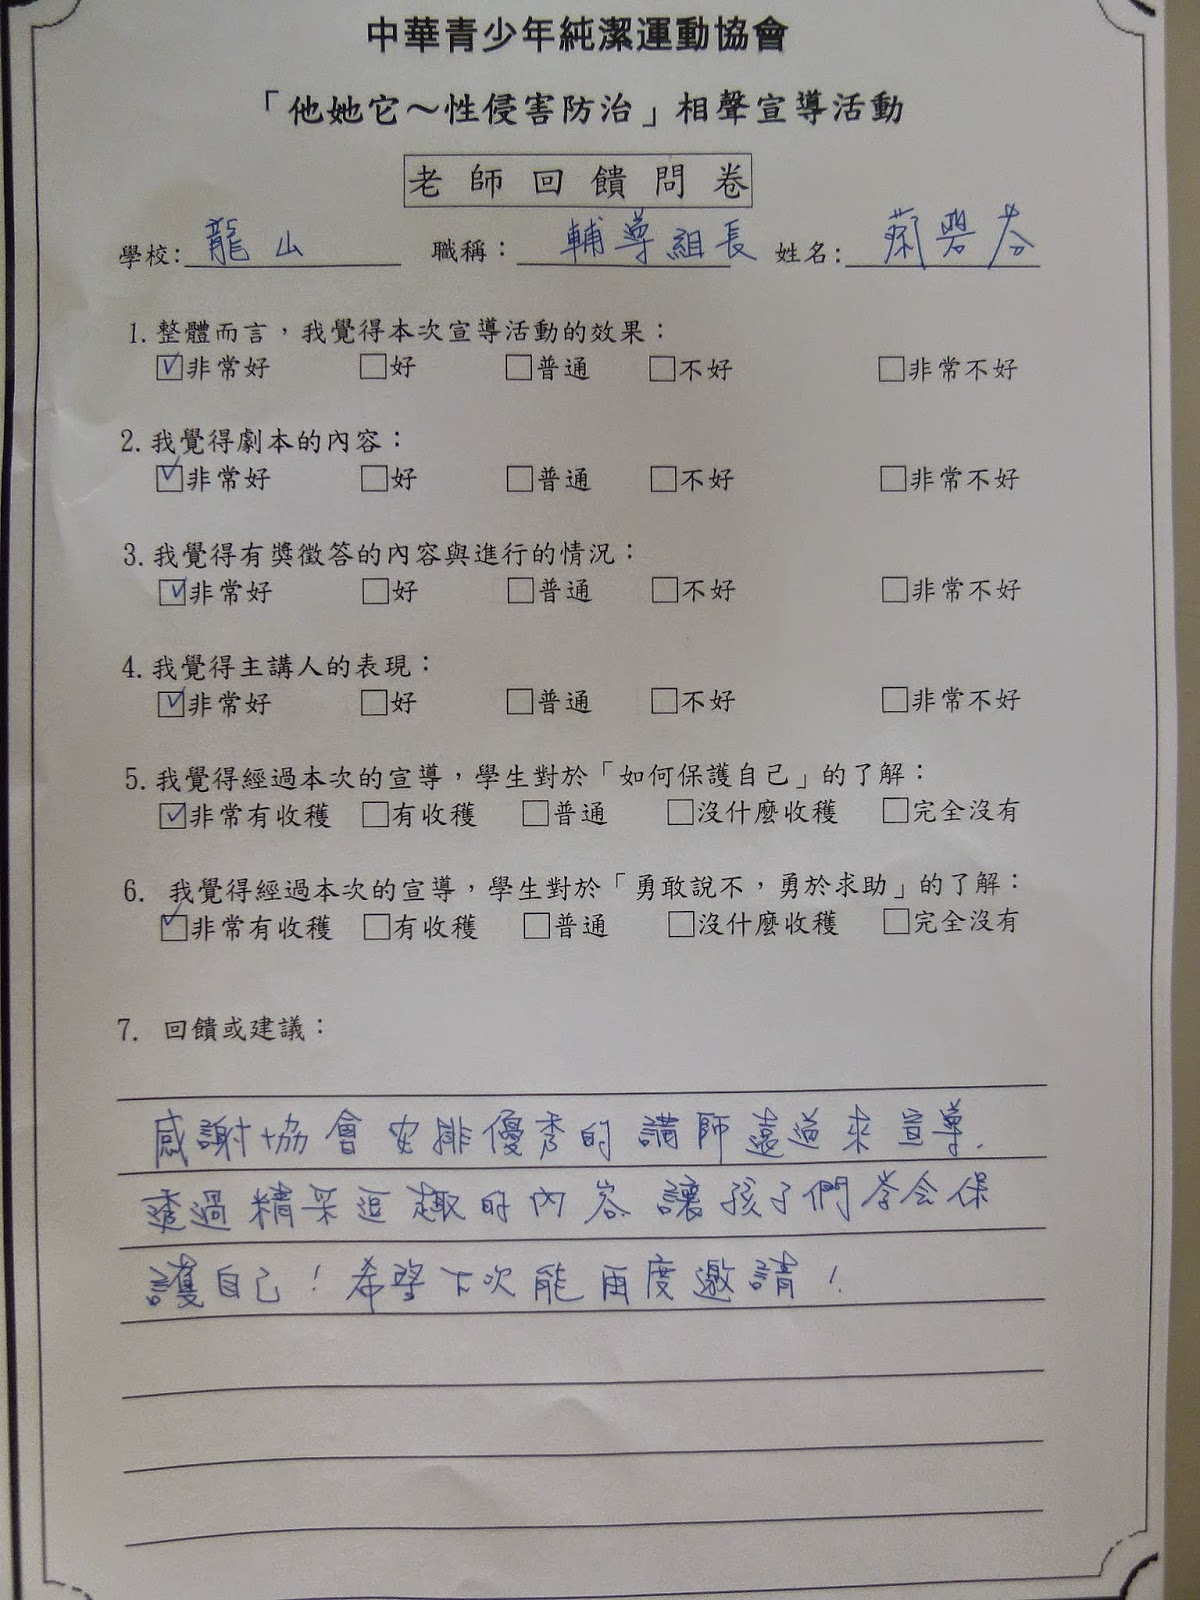 中華青少年純潔運動協會
「他她它～性侵害防治」相聲宣導活動
老師回饋問卷
學校: 龍山 職稱： 輔導組長 姓名:
1.整體而言，我覺得本次宣導活動的效果：
☑非常好 □好 □普通 □不好 □非常不好
2.我覺得劇本的內容：
☑非常好 □好 □普通 □不好 □非常不好
3.我覺得有獎徵答的內容與進行的情況：
☑非常好 □好 □普通 □不好 □非常不好
4.我覺得主講人的表現：
☑非常好 □好 □普通 □不好 □非常不好
5.我覺得經過本次的宣導，學生對於「如何保護自己」的了解：
☑非常有收穫 □有收穫 □普通 □沒什麼收穫 □完全沒有
6. 我覺得經過本次的宣導，學生對於「勇敢說不，勇於求助」的了解：
☑非常有收穫 □有收穫 □普通 □沒什麼收穫 □完全沒有
7. 回饋或建議：
感謝協會安排優秀的講師遠道來宣導.
透過精采逗趣的內容讓孩子們学会保
護自己！希望下次能再度邀請！